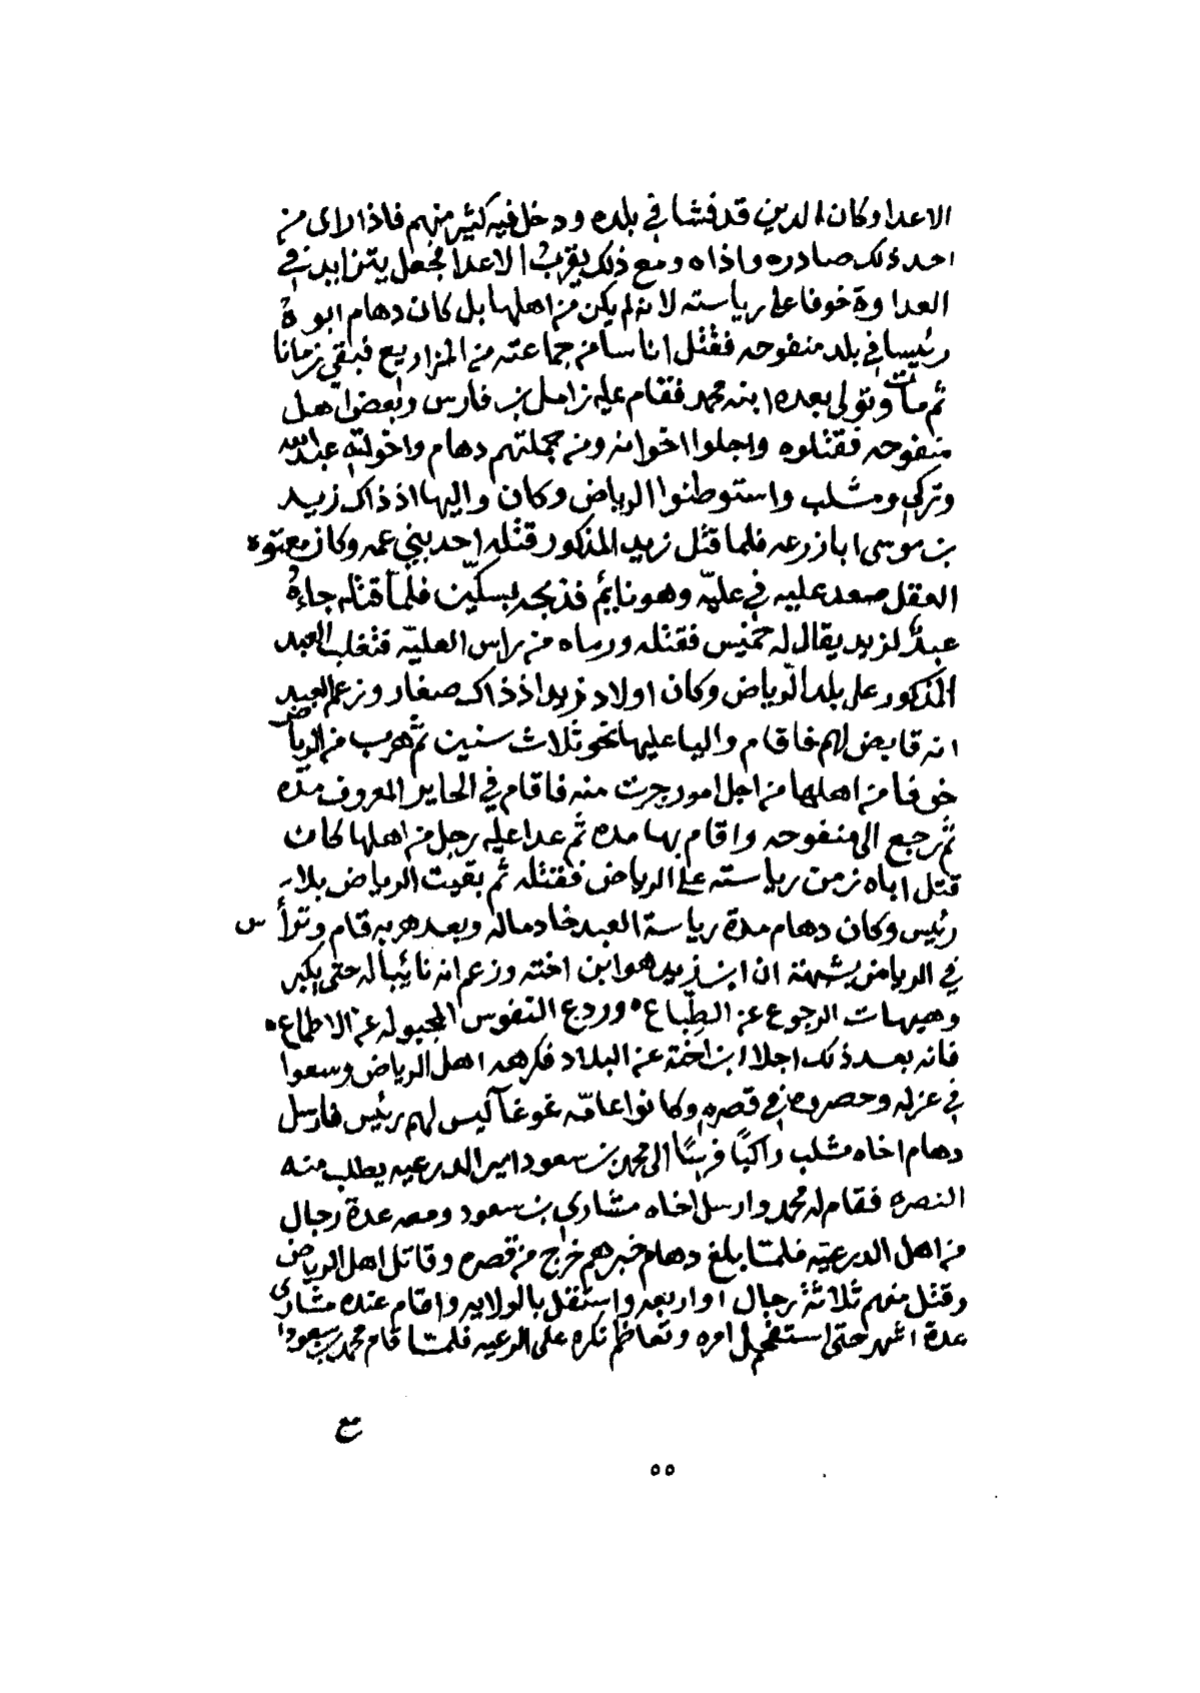 الاعدا وكان الدين قد فشا في بلده ودخل فيه كثير منهم فاذا راى من
احد ذلك صادره واذاه ومع ذلك يقرب الاعدا فجعل يتزايد في
العداوة خوفا على رياسته لانه لم يكن من اهلها بل كان دهام ابوهُ
رئيسا في بلد منفوحه فقتل اناسا من جماعته من المزاريع فبقي زمانا
ثم مات وتولى بعده ابنه محمد فقام عليه زامل بن فارس وبعض اهل
منفوحه فقتلوه واجلوا اخوانه ومن جملتهم دهام واخوانه عبدالله
وتركي ومشلب واستوطنوا الرياض وكان واليها اذ ذاك زيد
بن موسى ابا زرعه فلما قتل زيد المذكور قتله احد بني عمه وكان معتوه
العقل صعد عليه في عليّه وهو نايم فذبحه بسكّين فلمّا قتله جاءهُ
عبدٌ لزيد يقال له خميّس فقتله ورماه من راس العليّه فتغلب العبد
المذكور على بلد الرياض وكان اولاد زيد اذ ذاك صغار وزعم العبد
انه قابض لهم فاقام واليا عليها نحو ثلاث سنين ثم هرب من الرياض
خوفا من اهلها من اجل امور جرت منه فاقام في الحاير المعروف مده
ثم رجع الى منفوحه واقام بها مده ثم عدا عليه رجل من اهلها كان
قتل اباه زمن رياسته على الرياض فقتله ثم بقيت الرياض بلا
رئيس وكان دهام مدة رياسة العبد خادما له وبعد هربه قام وترأس
في الرياض بشبهة ان ابن زيد هو ابن اخته وزعم انه نايبا له حتى يكبر
وهيهات الرجوع عن الطِّباع ٥ وردع النفوس المجبوله عن الاطماع ٥
فانه بعد ذلك اجلا ابن اخته عن البلاد فكرهه اهل الرياض وسعوا
في عزله وحصروه في قصره وكانوا عامّه غوغا ليس لهم رئيس فارسل
دهام اخاه مشلب راكبًا فرسًا الى محمد بن سعود امير الدرعيه يطلب منه
النصره فقام له محمد وارسل اخاه مشاري بن سعود ومعه عدة رجال
من اهل الدرعيّه فلمّا بلغ دهام خبرهم خرج من قصره وقاتل اهل الرياض
وقتل منهم ثلاثة رجال او اربعه واستقل بالولايه واقام عنده مشاري
عدة اشهر حتى استفحل امره وتعاظم نكره على الرعيه فلمّا قام محمد بن سعود
مع
٥٥